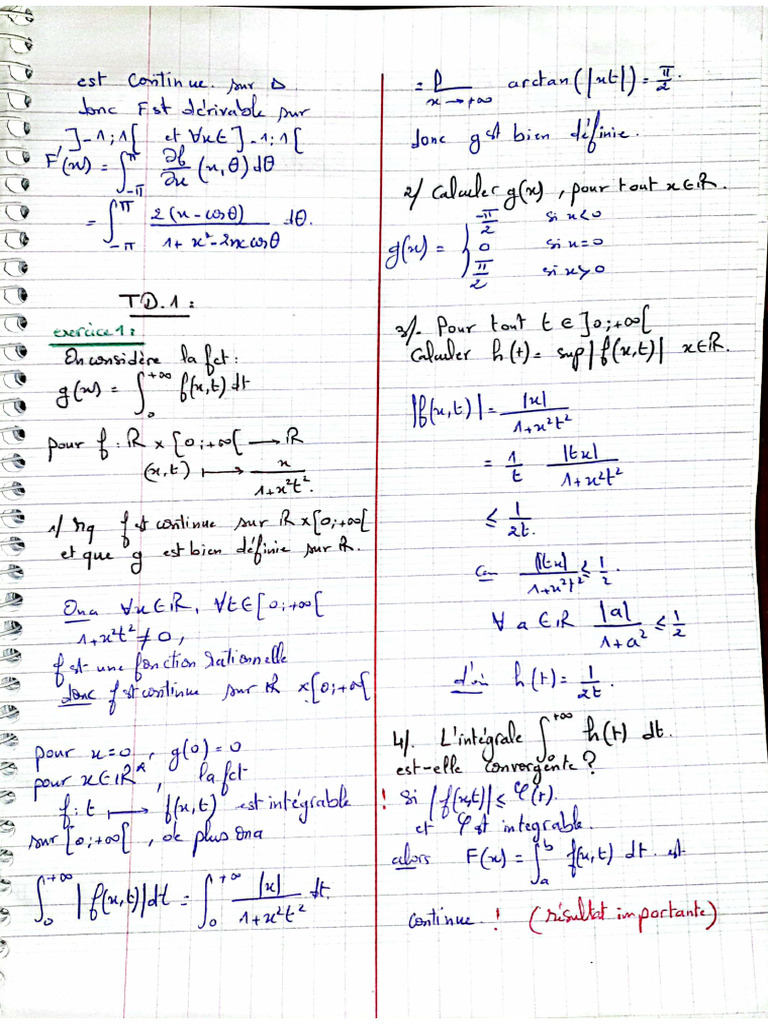 est continue sur Δ
donc F est dérivable sur
]-1;1[ et ∀x∈]-1;1[
F'(x) = ∫_{-π}^{π} ∂f/∂x (x,θ) dθ
= ∫_{-π}^{π} 2(x-cosθ)/(1+x²-2xcosθ) dθ.
TD.1:
exercice 1:
On considère la fct:
g(x) = ∫_0^{+∞} f(x,t) dt
pour f: ℝ × [0;+∞[ → ℝ
(x,t) ↦ x/(1+x²t²).
1/ Mq f est continue sur ℝ×[0;+∞[
et que g est bien définie sur ℝ.
On a ∀x∈ℝ, ∀t∈[0;+∞[
1+x²t² ≠ 0,
f est une fonction rationnelle
donc f est continue sur ℝ ×[0;+∞[
pour x=0, g(0)=0
pour x∈ℝ*, la fct
f: t ↦ f(x,t) est intégrable
sur [0;+∞[, de plus on a
∫_0^{+∞} |f(x,t)|dt = ∫_0^{+∞} |x|/(1+x²t²) dt.
= l_{x→+∞} arctan(|xt|) = π/2.
donc g est bien définie.
2/ Calculer g(x), pour tout x∈ℝ.
g(x) = { -π/2 si x<0
0 si x=0
π/2 si x>0
3/. Pour tout t ∈ ]0;+∞[
Calculer h(t) = sup|f(x,t)| x∈ℝ.
|f(x,t)| = |x|/(1+x²t²)
= 1/t |tx|/(1+x²t²)
≤ 1/2t.
Car |tx|/(1+x²t²) ≤ 1/2.
∀ a∈ℝ |a|/(1+a²) ≤ 1/2
d'où h(t) = 1/2t.
4/. L'intégrale ∫_0^{+∞} h(t) dt.
est-elle convergente?
! Si |f(x,t)| ≤ φ(t).
et φ est integrable.
alors F(x) = ∫_a^b f(x,t) dt. est
continue. ! (résultat importante)